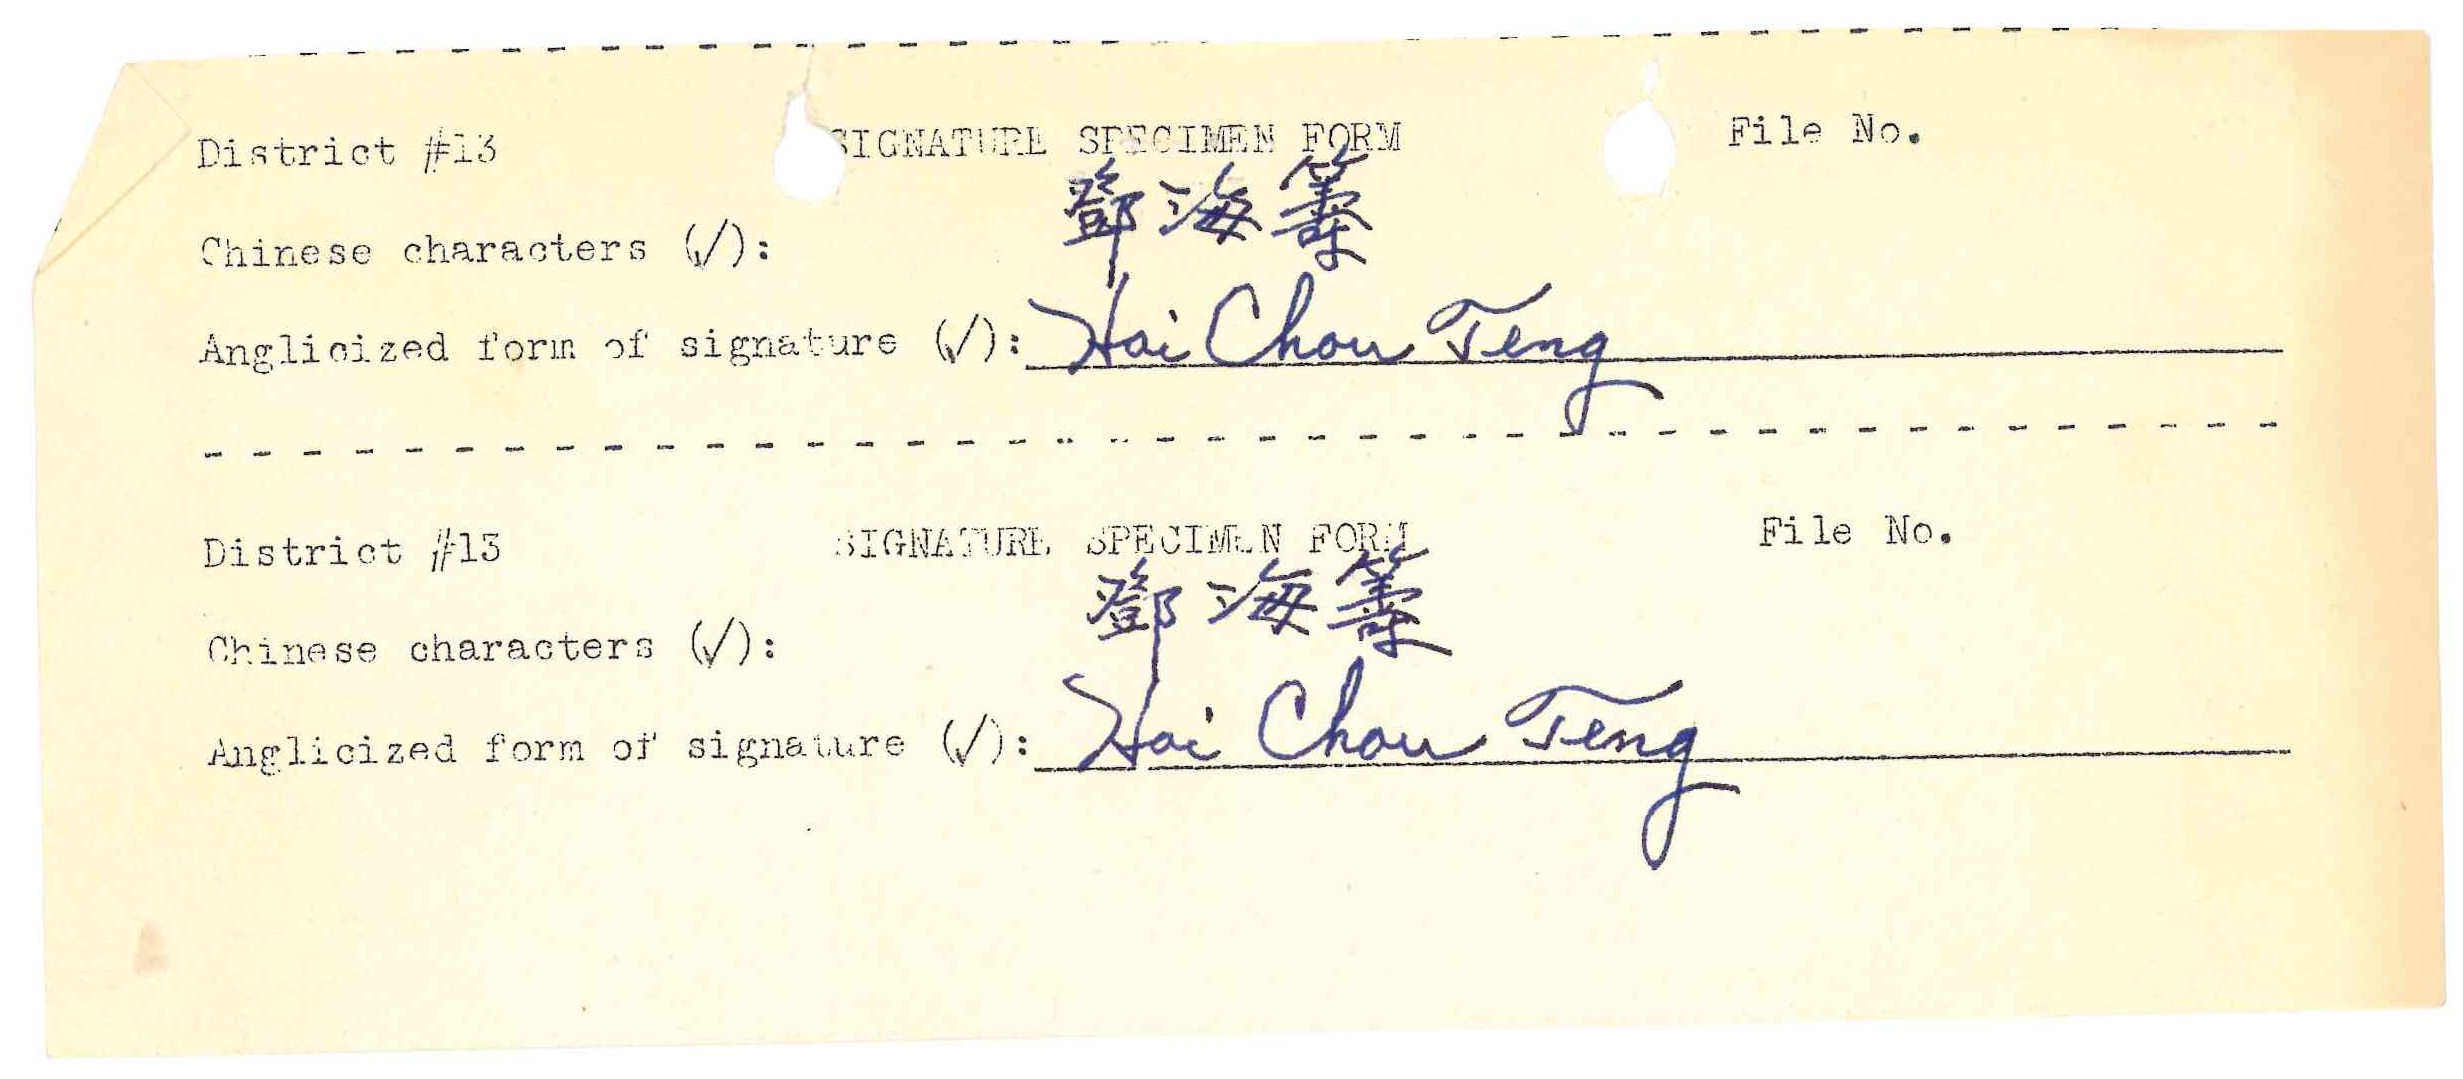 District #13 SIGNATURE SPECIMEN FORM File No.
Chinese characters (✓): 鄧海籌
Anglicized form of signature (✓): Hai Chou Teng
District #13 SIGNATURE SPECIMEN FORM File No.
Chinese characters (✓): 鄧海籌
Anglicized form of signature (✓): Hai Chou Teng